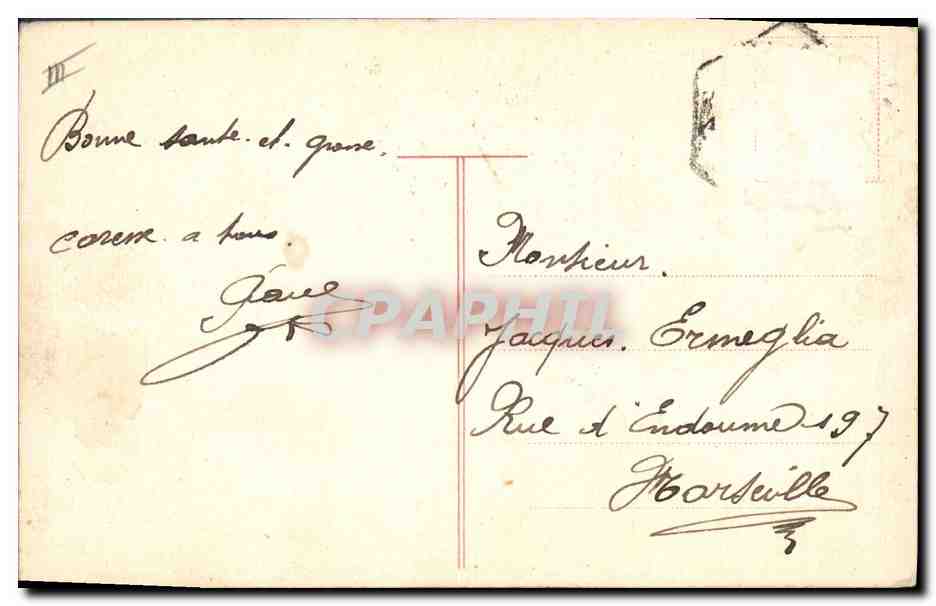 III
Bonne sante et grosse
caresse a tous.
Monsieur.
Jacques. Ermeglia
Rue d'Endoume 197
Marseille
CPAPHIL